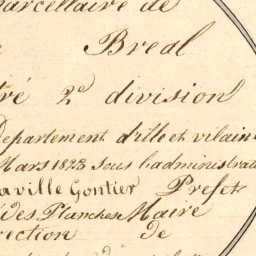 arcellaire de
Breal
tré 2e division
Departement d'ille et vilain
Mars 1823 sous l'administrat
aville Gontier Prefet
des Planches Maire
rection de